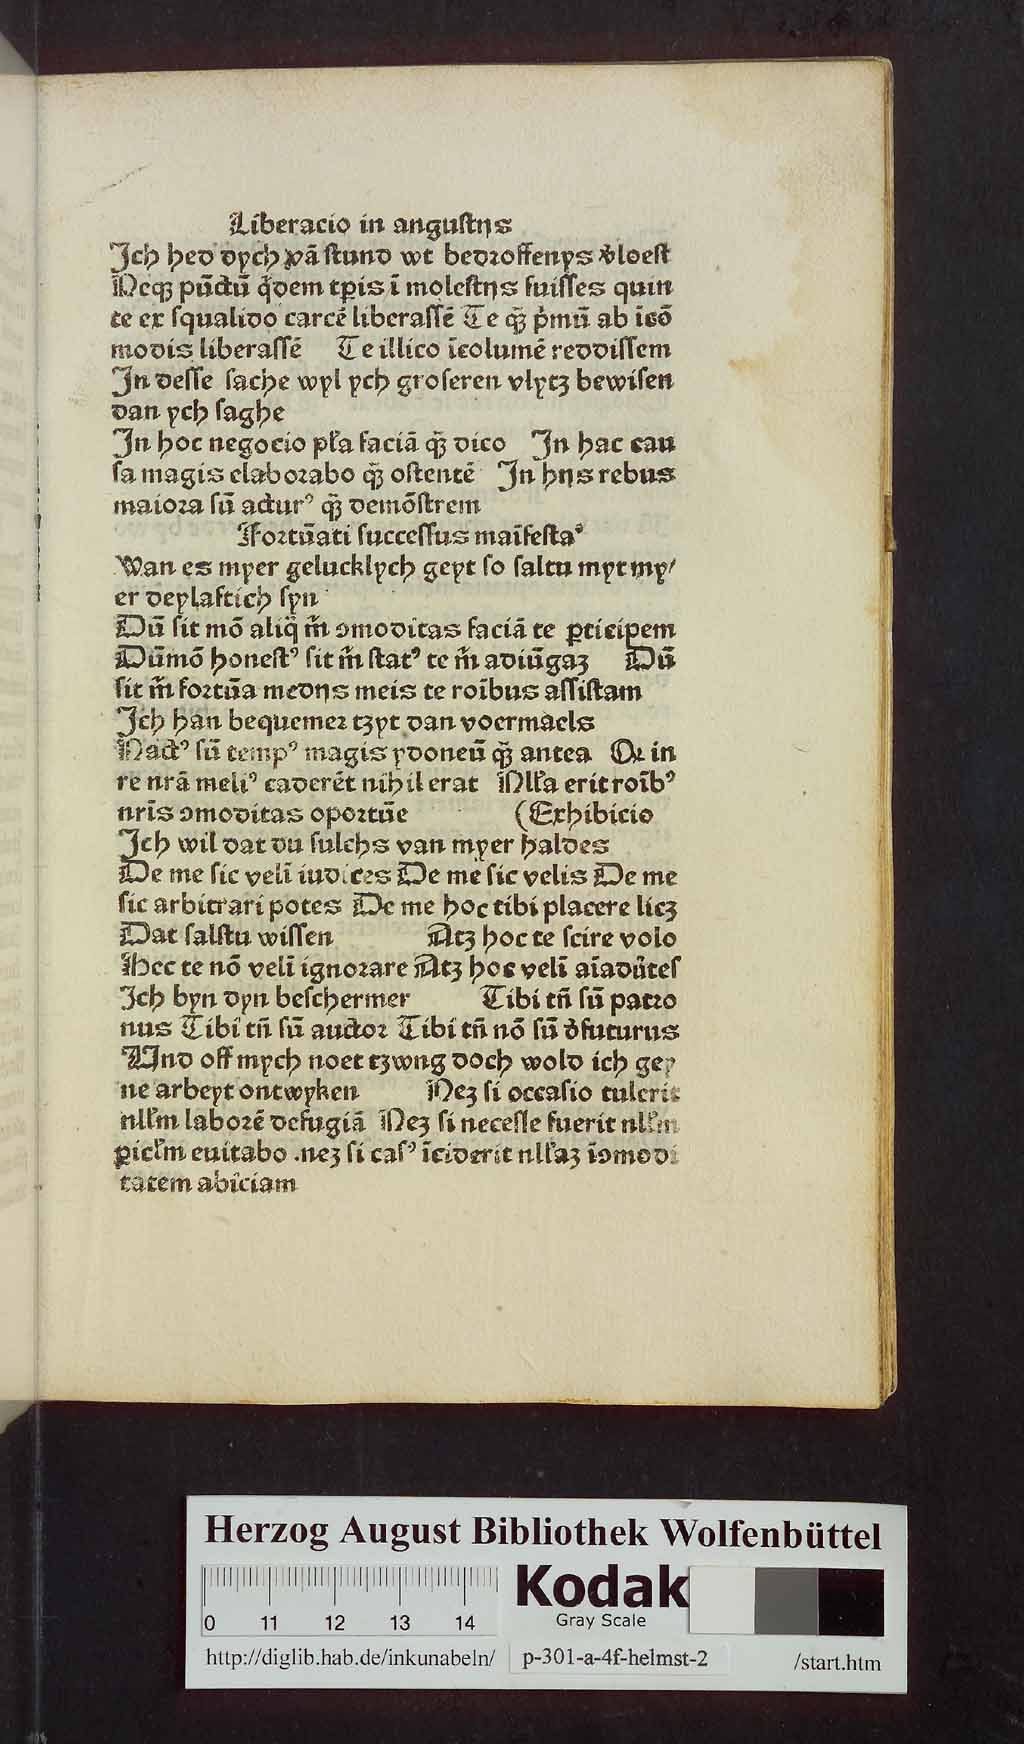 Liberacio in angustijs
Jch hed dych vā stund wt bedroffenys v̓loest
Neqꝫ pūctū q̓dem tꝑis ī molestijs fuisses quin
te ex squalido carcē liberassē Te qꝫ̄ p̓mū ab īcō
modis liberassē Te illico īcolumē reddissem
Jn desse sache wyl ych groseren vlytz bewisen
dan ych saghe
Jn hoc negocio pl̓a faciā qꝫ̄ dico Jn hac cau
sa magis elaborabo qꝫ̄ ostentē Jn hijs rebus
maiora sū acturꝰ qꝫ̄ demōstrem
Fortūati successus maīfestaꝰ
Wan es myer gelucklych geyt so saltu myt my/
er deylaftich syn
Dū sit mō aliq̄ m̄ ꝯmoditas faciā te ꝑticipem
Dūmō honestꝰ sit m̄ statꝰ te m̄ adiūgaꝫ Dū
sit m̄ fortūa medijs meis te roībus assistam
Jch han bequemer tzyt dan voermaels
Nactꝰ sū tempꝰ magis ydoneū qꝫ̄ antea Qꝛ in
re nrā meliꝰ caderēt nihil erat Nll̓a erit roībꝰ
nrīs ꝯmoditas oportūe (Exhibicio
Jch wil dat du sulchs van myer haldes
De me sic velī iudices De me sic velis De me
sic arbitrari potes De me hoc tibi placere licꝫ
Dat salstu wissen Atꝫ hoc te scire volo
Hec te nō velī ignorare Atꝫ hoc velī aīadūtes
Jch byn dyn beschermer Tibi tn̄ sū patro
nus Tibi tn̄ sū auctor Tibi tn̄ nō sū d̓futurus
Vnd off mych noet tzwng doch wold ich gey
ne arbeyt ontwyken Neꝫ si occasio tulerit
nll̓m laborē defugiā Neꝫ si necesse fuerit nll̓m
ꝑicl̓m euitabo .neꝫ si casꝰ īciderit nll̓aꝫ īꝯmodi
tatem abīciam
Herzog August Bibliothek Wolfenbüttel
0 11 12 13 14
Kodak
Gray Scale
http://diglib.hab.de/inkunabeln/ p-301-a-4f-helmst-2 /start.htm